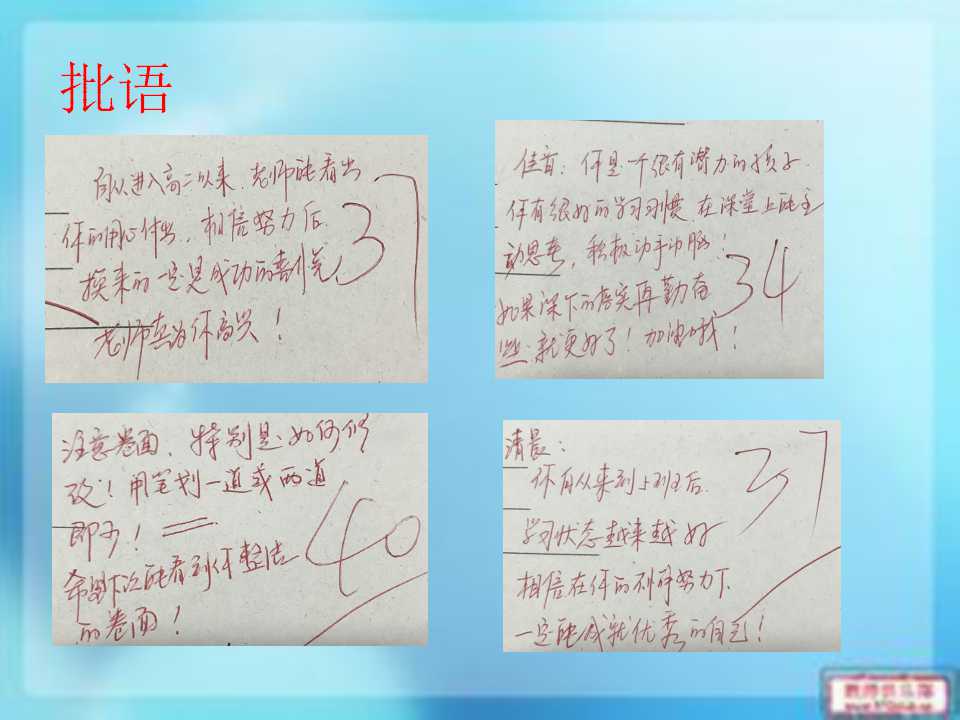 批语
自从进入高二以来,老师能看出
你的用心付出,相信努力后
换来的一定是成功的喜悦
老师真为你高兴!
37
佳音:你是一个很有潜力的孩子
你有很好的学习习惯 在课堂上能主
动思考,积极动手动脑!
如果课下的落实再勤奋
些 就更好了!加油哦!
34
注意卷面,特别是如何修
改!用笔划一道或两道
即可!
希望下次能看到你整洁
的卷面!
40
清晨:
你自从来到上班后
学习状态越来越好
相信在你的不断努力下
一定能成就优秀的自己!
37